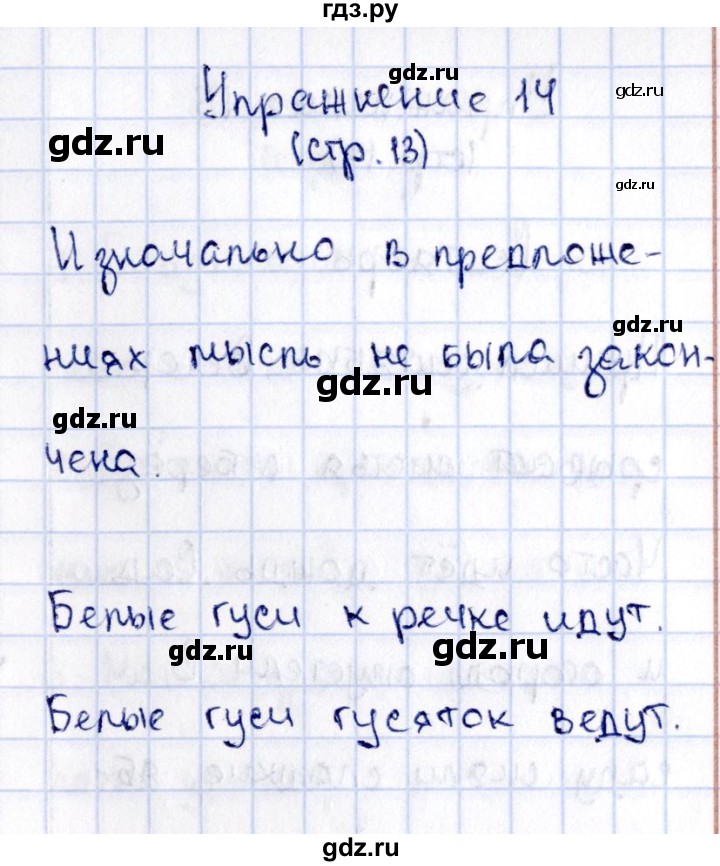 гдз.ру
Упражнение 14
(стр. 13)
Изначально в предложе-
ниях мысль не была закон-
чена.
Белые гуси к речке идут.
Белые гуси гусяток ведут.
gdz.ru
gdz.ru
gdz.ru
gdz.ru
gdz.ru
gdz.ru
gdz.ru
gdz.ru
gdz.ru
gdz.ru